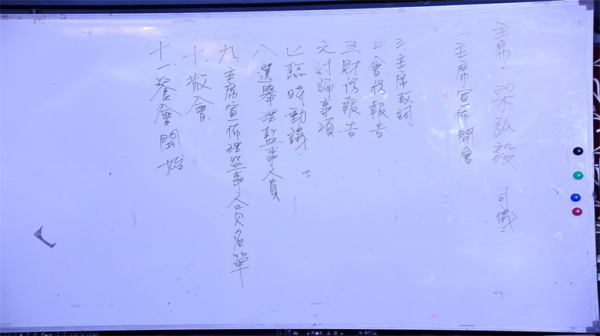 主席：梁弘毅 司儀：
一主席宣佈開會
三.主席致詞
四會務報告
五財務報告
六討論事項
七臨時動議
八選舉理監事人員
九.主席宣佈理監事人員名單
十.散會
十一.餐會開始